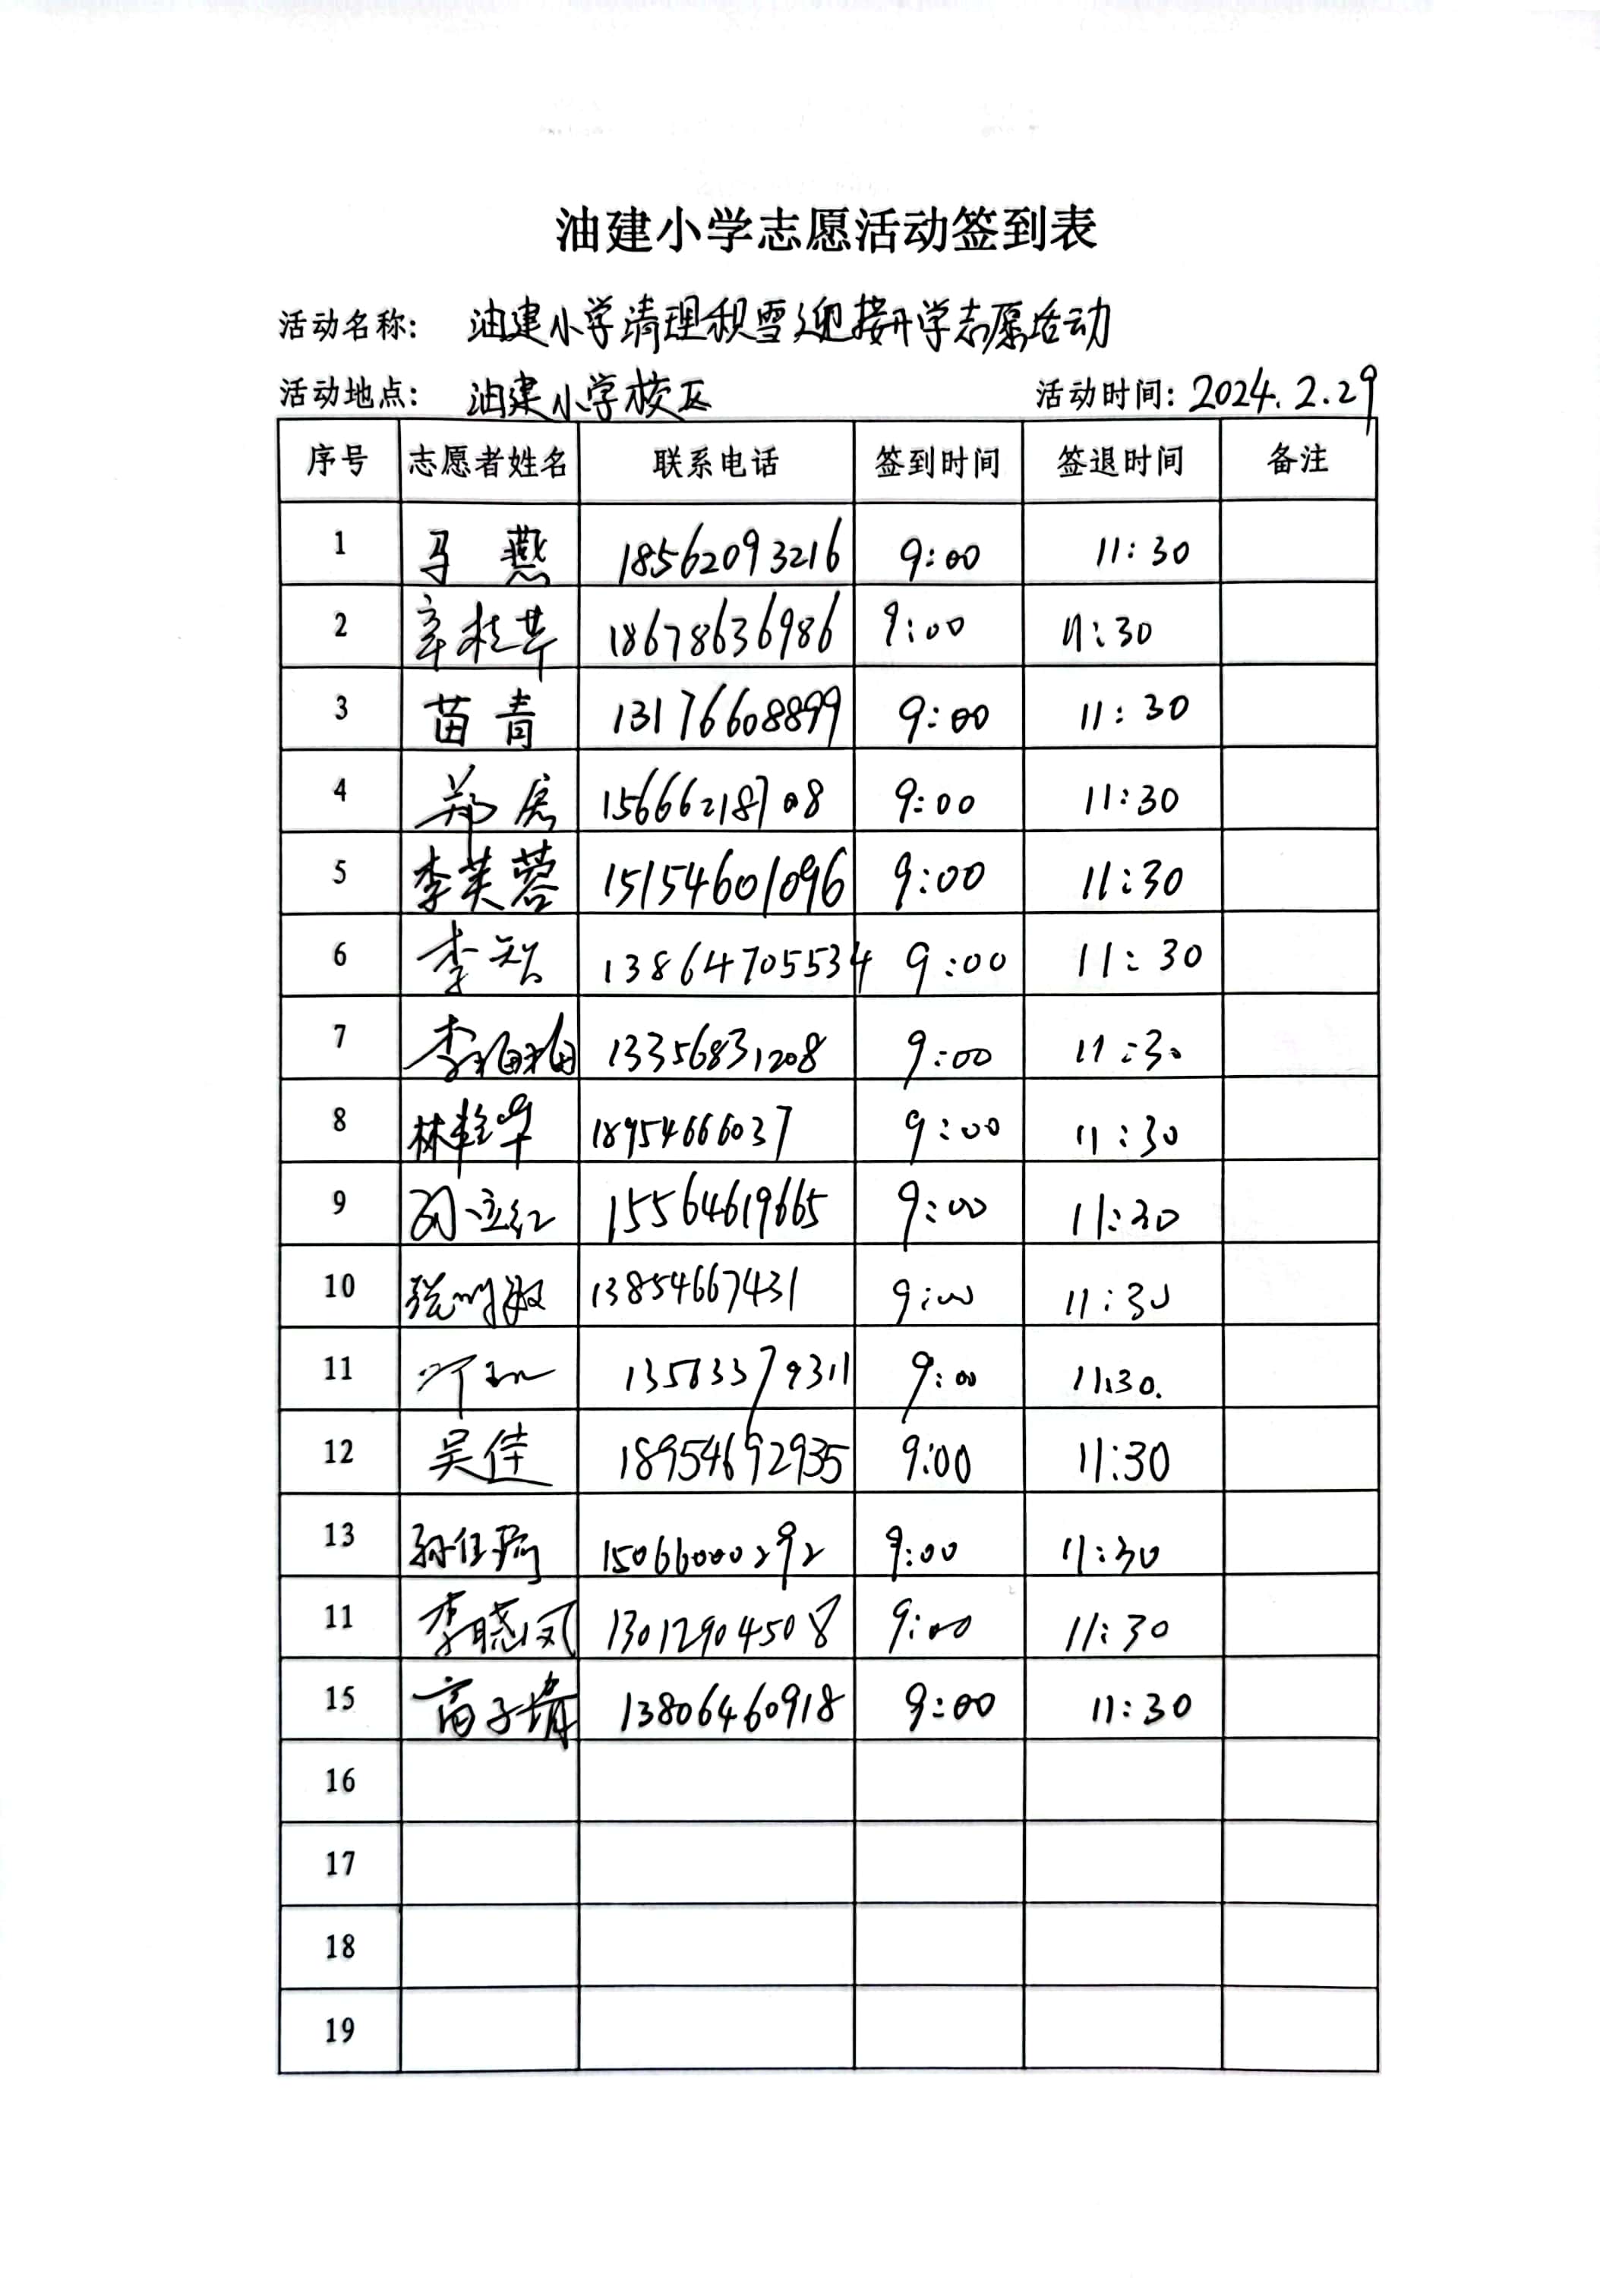 油建小学志愿活动签到表
活动名称: 油建小学清理积雪迎接开学志愿活动
活动地点: 油建小学校区 活动时间: 2024.2.29
序号 志愿者姓名 联系电话 签到时间 签退时间 备注
1 马燕 18562093216 9:00 11:30
2 辛桂苹 18678636986 9:00 11:30
3 苗青 13176608899 9:00 11:30
4 郑 15666218708 9:00 11:30
5 李芙蓉 15154601096 9:00 11:30
6 李智 13864705534 9:00 11:30
7 李梅梅 13356831208 9:00 11:30
8 林艳华 18954666037 9:00 11:30
9 立红 15564619665 9:00 11:30
10 张明敏 13854667431 9:00 11:30
11 9:00 11:30.
12 吴佳 18954692935 9:00 11:30
13 孙 15066000292 9:00 11:30
11 李晓凤 13012904508 9:00 11:30
15 高子靖 13806460918 9:00 11:30
16
17
18
19